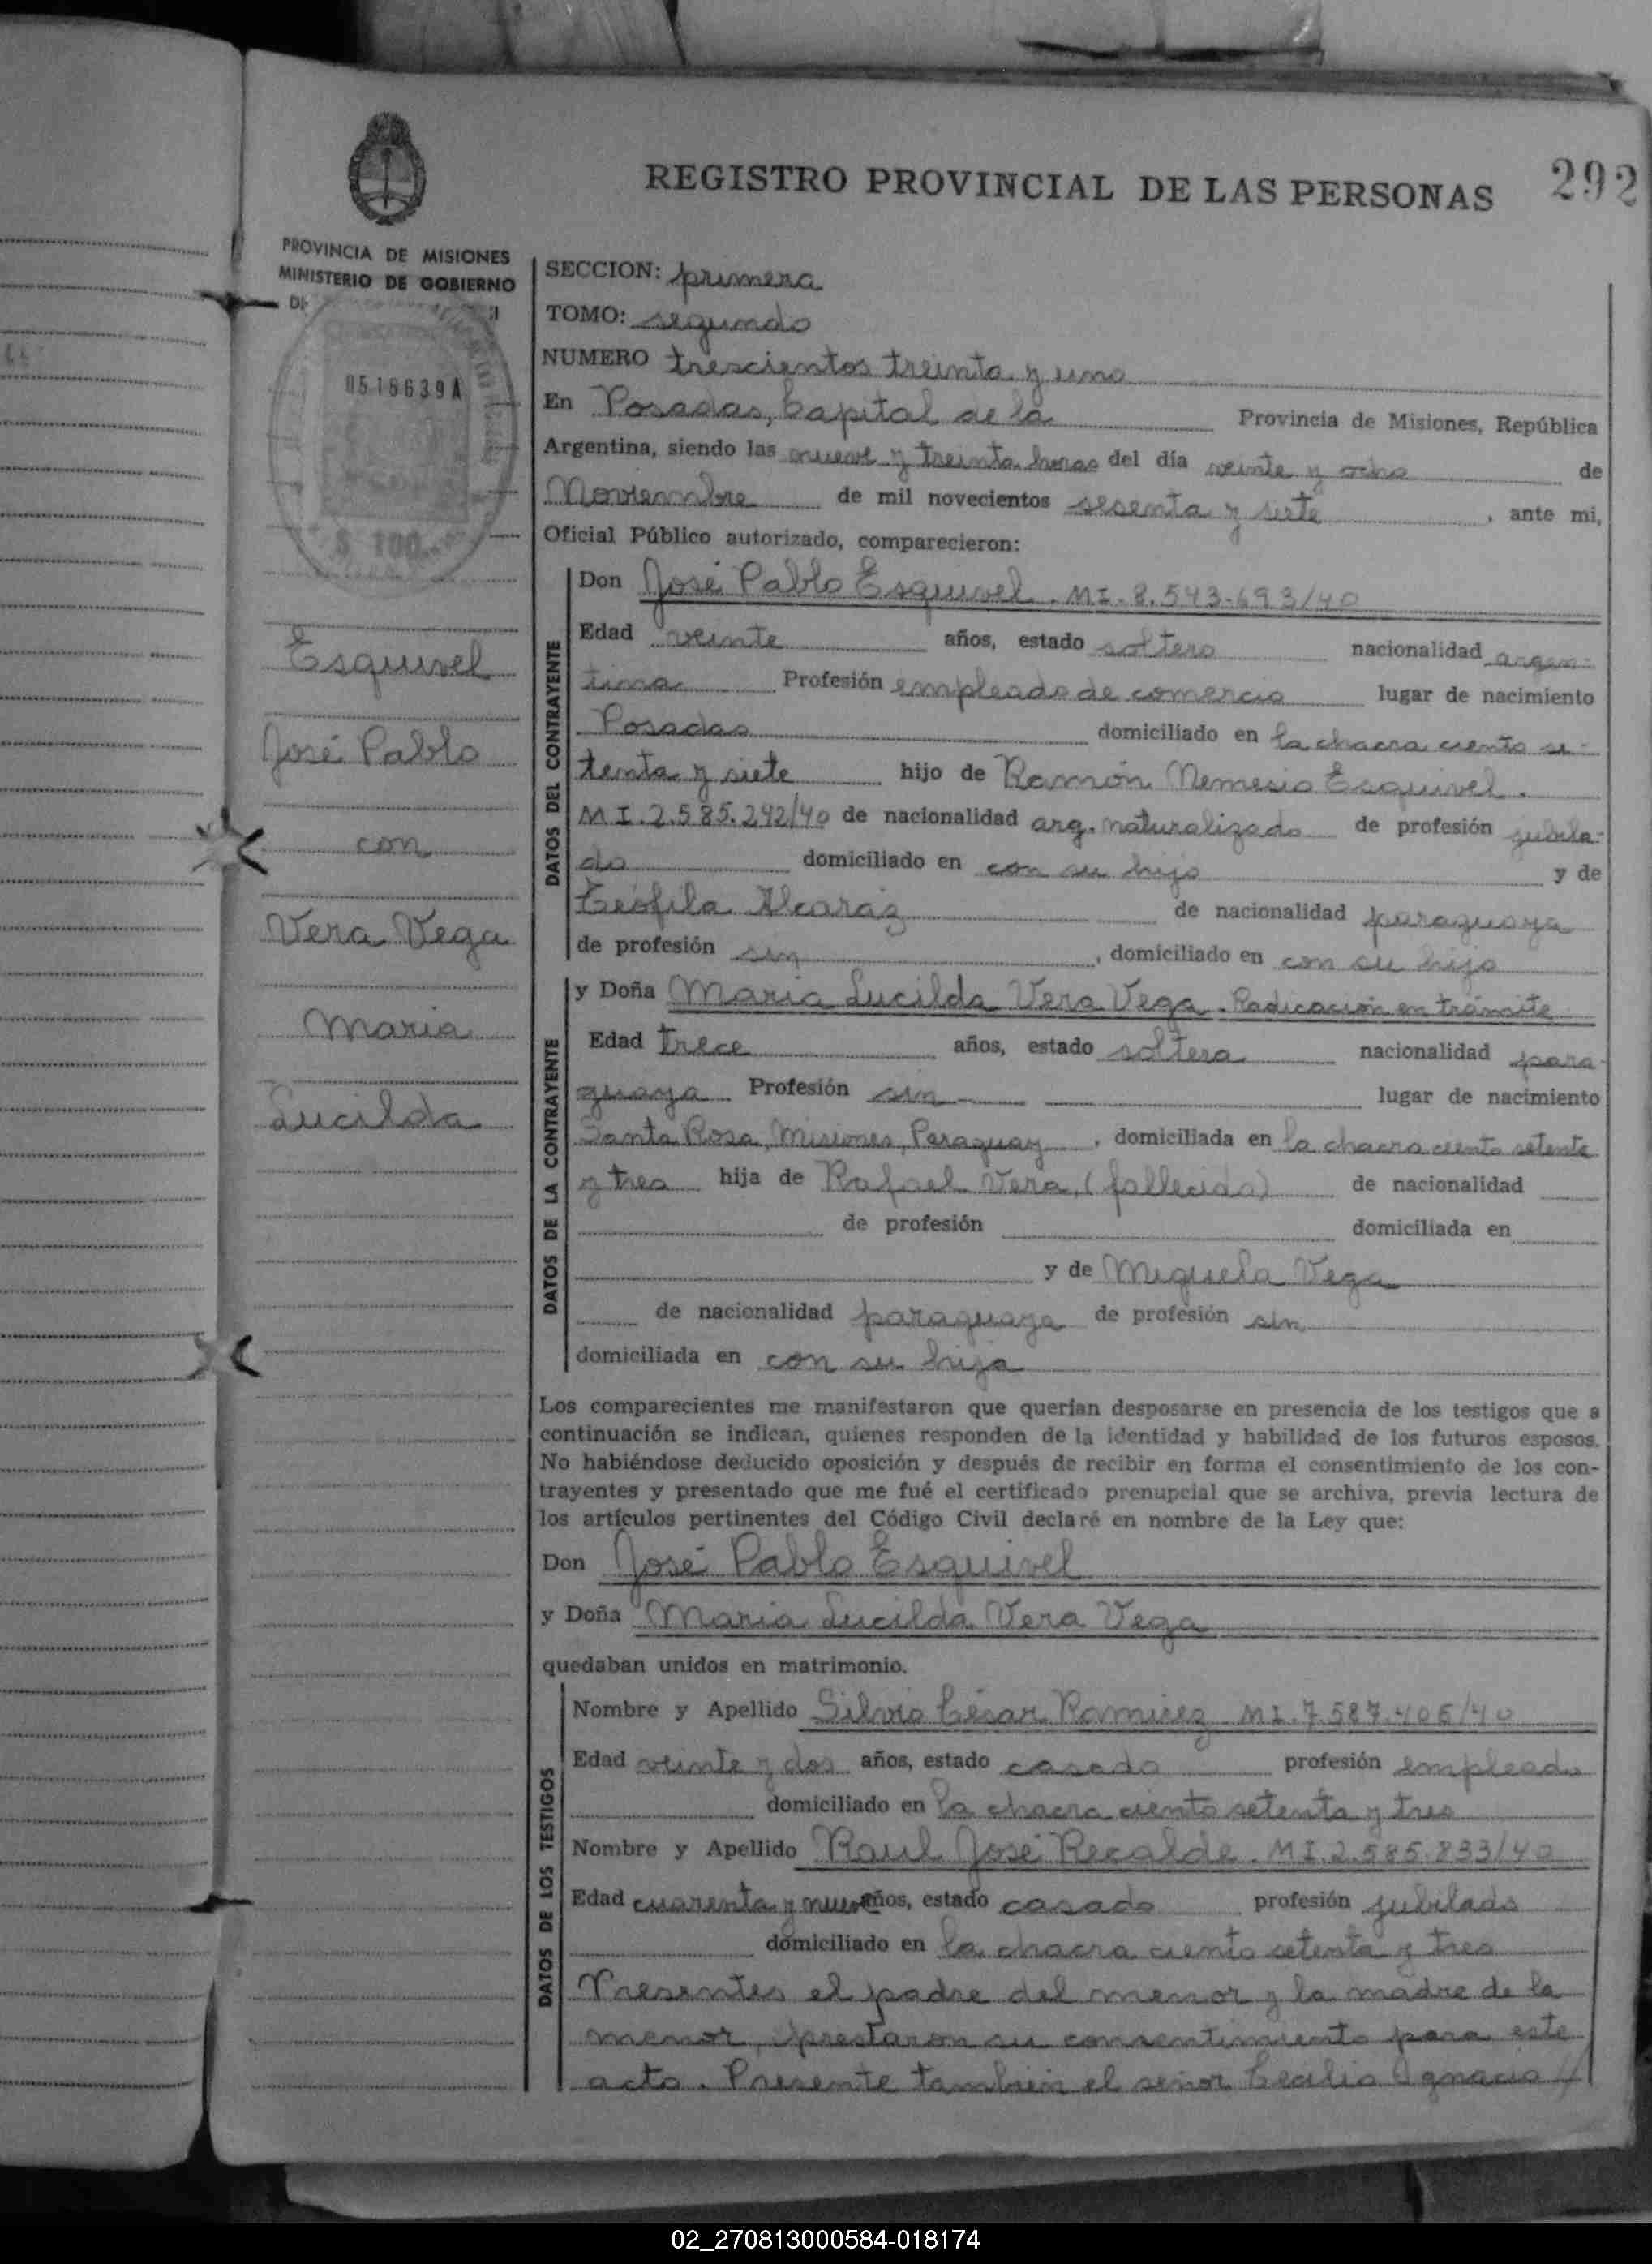 REGISTRO PROVINCIAL DE LAS PERSONAS 292
PROVINCIA DE MISIONES
MINISTERIO DE GOBIERNO
0516639A
$ 100
Esquivel
José Pablo
con
Vera Vega
Maria
Lucilda
SECCION: primera
TOMO: segundo
NUMERO trescientos treinta y uno
En Posadas, Capital de la Provincia de Misiones, República
Argentina, siendo las nueve y treinta horas del día veinte y ocho de
Noviembre de mil novecientos sesenta y siete, ante mi,
Oficial Público autorizado, comparecieron:
DATOS DEL CONTRAYENTE
Don José Pablo Esquivel. MI-8.543-693/40
Edad veinte años, estado soltero nacionalidad argen-
tina Profesión empleado de comercio lugar de nacimiento
Posadas domiciliado en la chacra ciento se-
tenta y siete hijo de Ramón Nemesio Esquivel.
MI.2.585.242/40 de nacionalidad arg. naturalizado de profesión jubila-
do domiciliado en con su hijo y de
Teófila Alcaráz de nacionalidad paraguaya
de profesión sin, domiciliado en con su hijo
DATOS DE LA CONTRAYENTE
y Doña Maria Lucilda Vera Vega. Radicación en trámite
Edad trece años, estado soltera nacionalidad para-
guaya Profesión sin lugar de nacimiento
Santa Rosa, Misiones, Paraguay, domiciliada en la chacra ciento setenta
y tres hija de Rafael Vera, (fallecido) de nacionalidad
de profesión domiciliada en
y de Miguela Vega
de nacionalidad paraguaya de profesión sin
domiciliada en con su hija
Los comparecientes me manifestaron que querían desposarse en presencia de los testigos que a
continuación se indican, quienes responden de la identidad y habilidad de los futuros esposos.
No habiéndose deducido oposición y después de recibir en forma el consentimiento de los con-
trayentes y presentado que me fué el certificado prenupcial que se archiva, previa lectura de
los artículos pertinentes del Código Civil declaré en nombre de la Ley que:
Don José Pablo Esquivel
y Doña Maria Lucilda Vera Vega
quedaban unidos en matrimonio.
DATOS DE LOS TESTIGOS
Nombre y Apellido Silvio César Ramirez MI.7.587.406/40
Edad veinte y dos años, estado casado profesión empleado
domiciliado en la chacra ciento setenta y tres
Nombre y Apellido Raul José Recalde. MI.2.585.833/40
Edad cuarenta y nueve años, estado casado profesión jubilado
domiciliado en la chacra ciento setenta y tres
Presentes el padre del menor y la madre de la
menor, prestaron su consentimiento para este
acto. Presente también el señor Cecilio Ignacio //
02_270813000584-018174